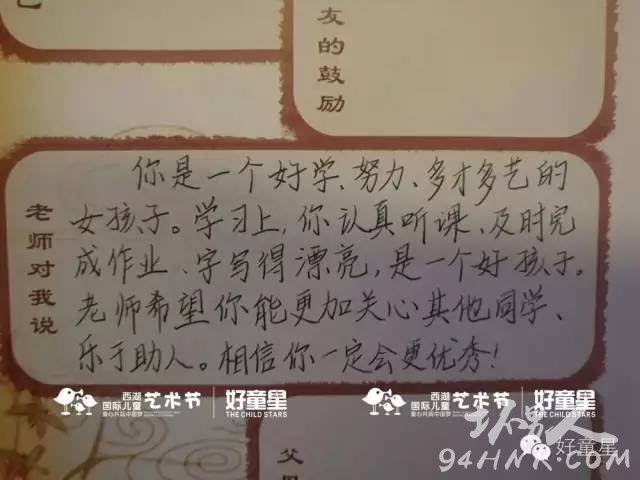 己
友的鼓励
老师对我说
你是一个好学、努力、多才多艺的
女孩子。学习上,你认真听课、及时完
成作业、字写得漂亮,是一个好孩子。
老师希望你能更加关心其他同学、
乐于助人。相信你一定会更优秀!
西湖
国际儿童
艺术节
童心共筑中国梦
好童星
THE CHILD STARS
西湖
国际儿童
艺术节
童心共筑中国梦
好童星
THE CHILD STARS
好童星
94HNR.COM
父